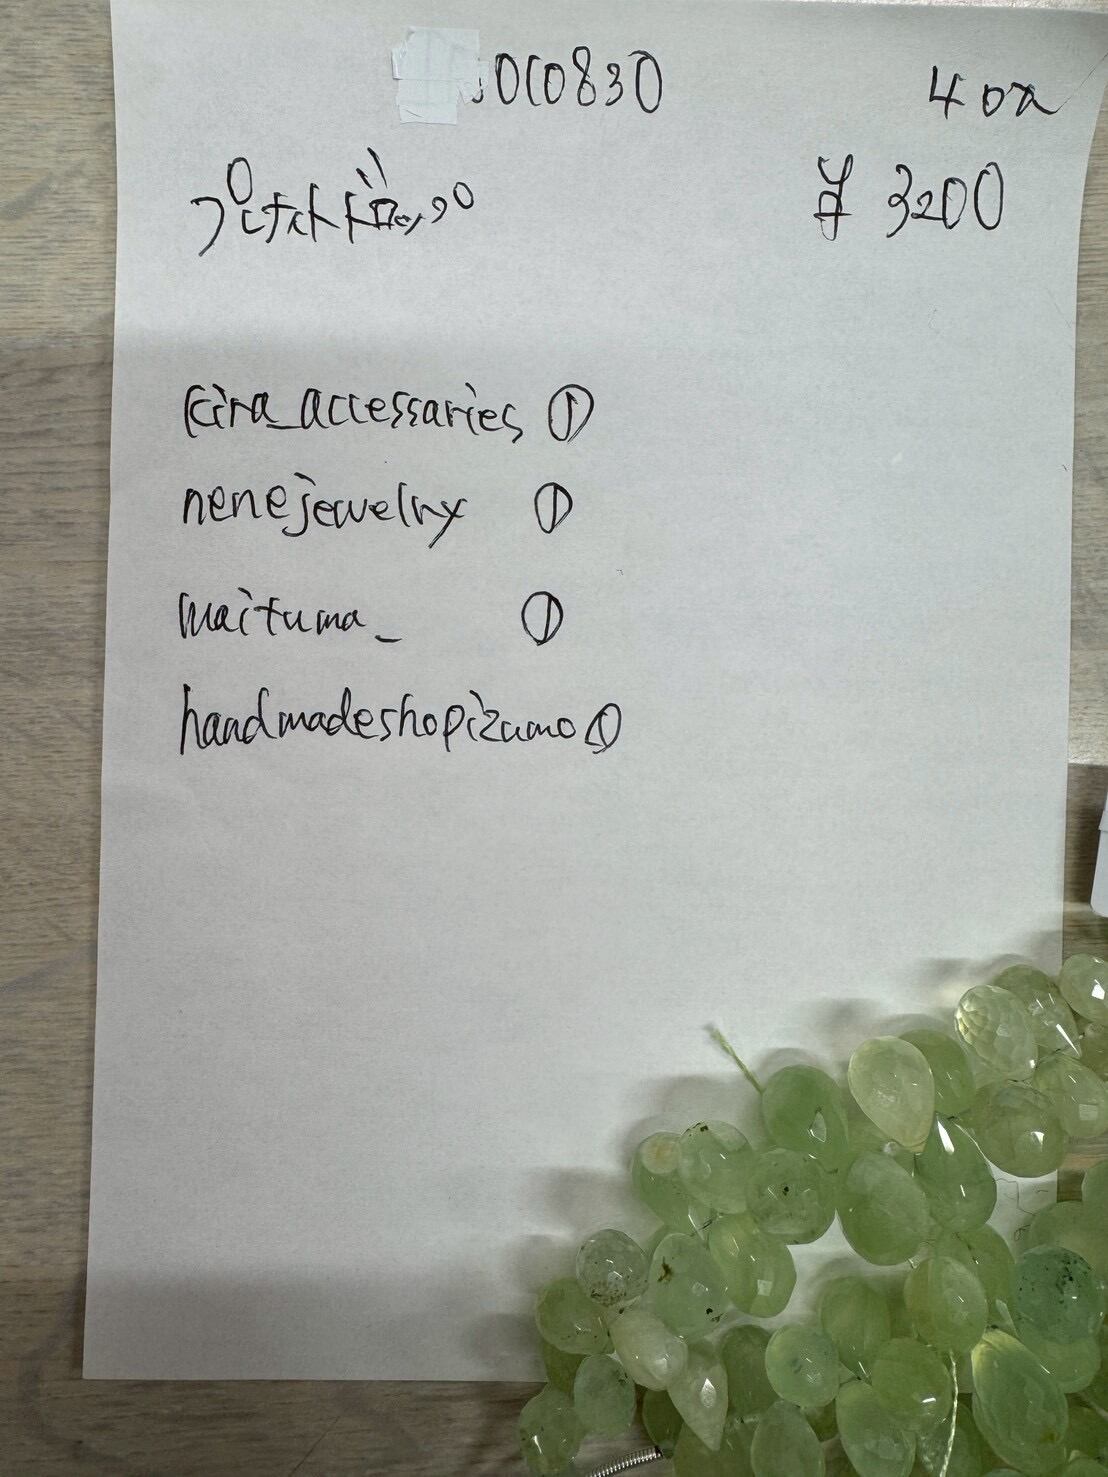 010830
40cm
プレナイトドロップ
¥3200
kira_accessaries ①
nenejewelry ①
maituma_ ①
handmadeshopizumo ①